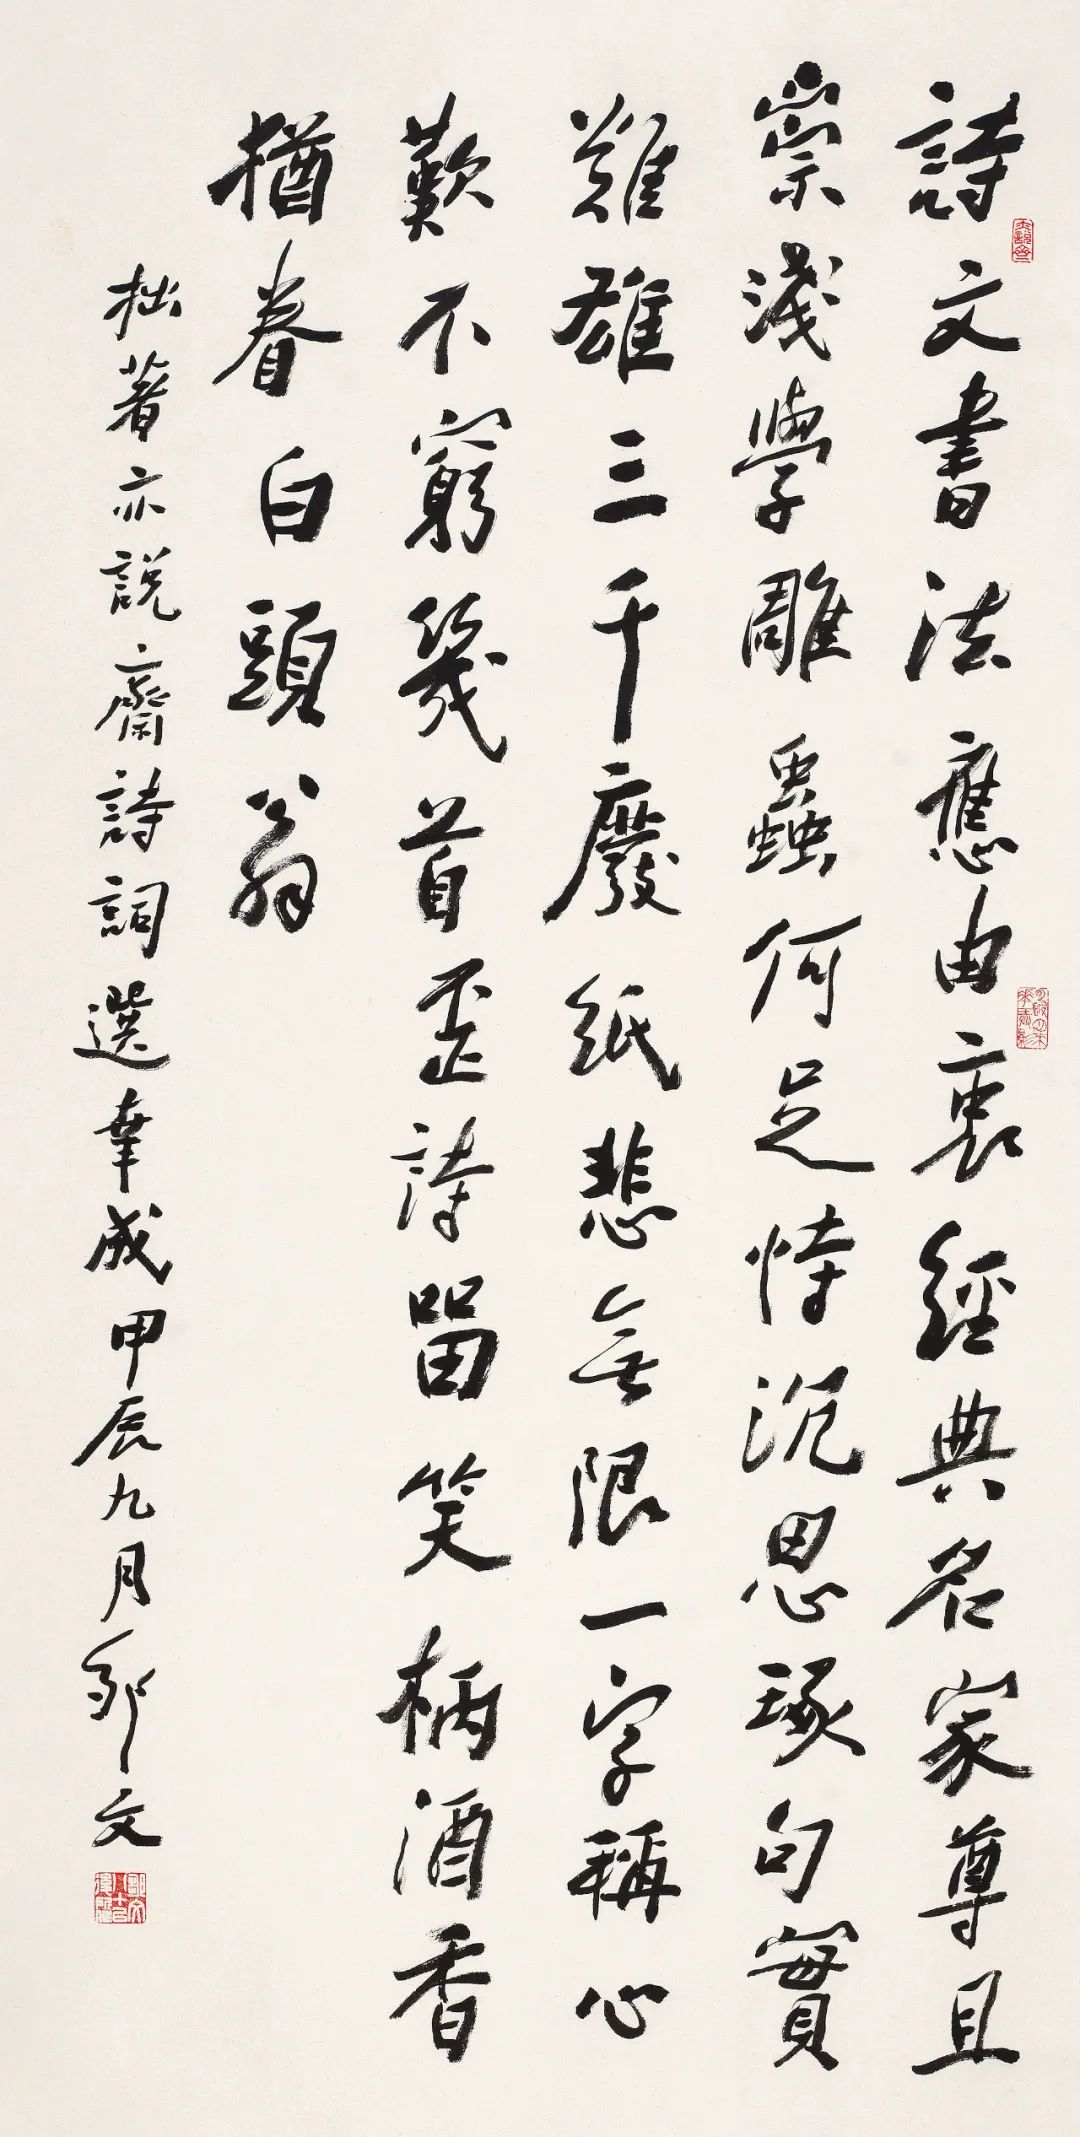 詩文書法應由衷經典名家尊且
崇淺學雕蟲何足恃沉思琢句實
難雄三千廢紙悲無限一字稱心
歎不窮幾首歪詩留笑柄酒香
猶眷白頭翁
拙著亦說齋詩詞選輯成甲辰九月鄒文